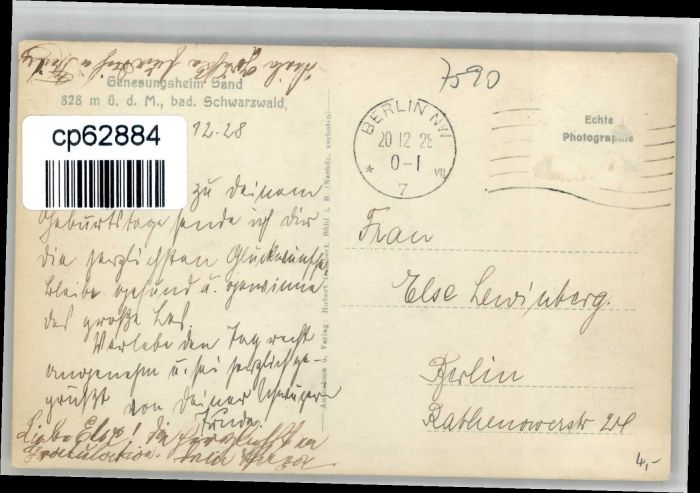 Genesungsheim Sand
828 m ü. d. M., bad. Schwarzwald,
cp62884
12.28
zu Deinem
Geburtstage sende ich Dir
die herzlichsten Glückwünsche,
bleibe gesund u. gewinne
das große Los.
Verlebe den Tag recht
angenehm u. sei herzlich ge-
grüßt von Deiner Schwägerin
Frida.
Liebe Else! die herzlichsten
Gratulation.
Aufnahme u. Verlag Hubert
Bühl i. B. (Nachdr. verboten)
7590
BERLIN NW
20 12 28
0-1
VII
* 7
Echte
Photographie
Frau
Else Lewinberg.
Berlin
Rathenowerstr 24
4,-